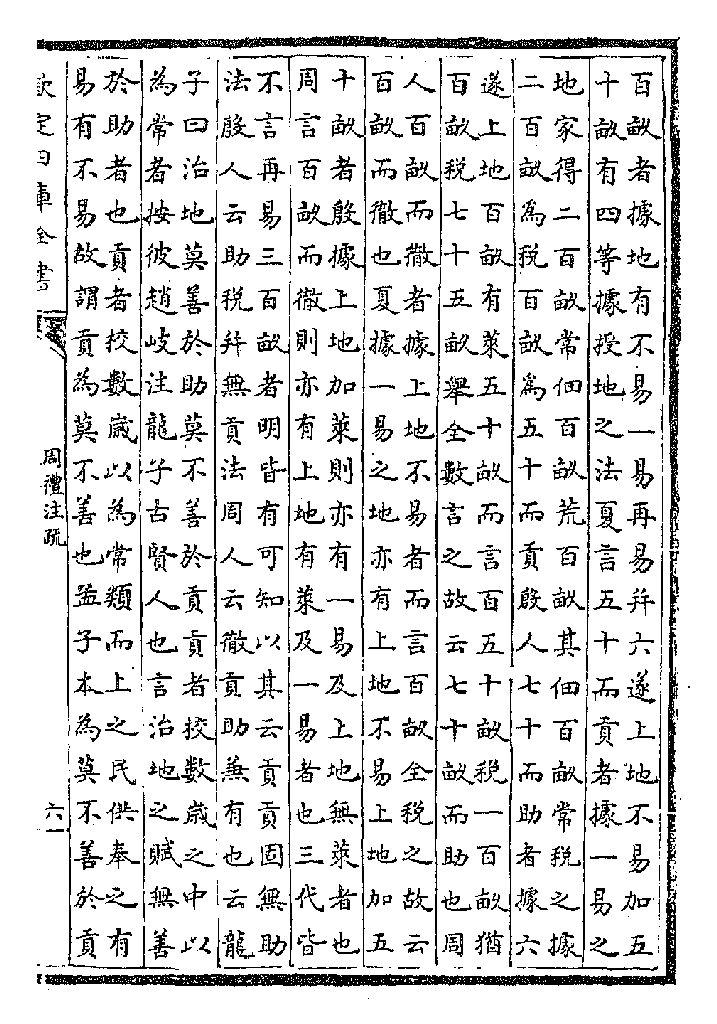 百畝者據地有不易一易再易并六遂上地不易加五
十畝有四等據授地之法夏言五十而貢者據一易之
地家得二百畝常佃百畝荒百畝其佃百畝常稅之據
二百畝為稅百畝為五十而貢殷人七十而助者據六
遂上地百畝有萊五十畝而言百五十畝稅一百畝猶
百畝稅七十五畝舉全數言之故云七十畝而助也周
人百畝而徹者據上地不易者而言百畝全稅之故云
百畝而徹也夏據一易之地亦有上地不易上地加五
十畝者殷據上地加萊則亦有一易及上地無萊者也
周言百畝而徹則亦有上地有萊及一易者也三代皆
不言再易三百畝者明皆有可知以其云貢貢固無助
法殷人云助稅并無貢法周人云徹貢助兼有也云龍
子曰治地莫善於助莫不善於貢貢者挍數歲之中以
為常者按彼趙岐注龍子古賢人也言治地之賦無善
於助者也貢者挍數歲以為常類而上之民供奉之有
易有不易故謂貢為莫不善也孟子本為莫不善於貢
欽定四庫全書
周禮注疏
六